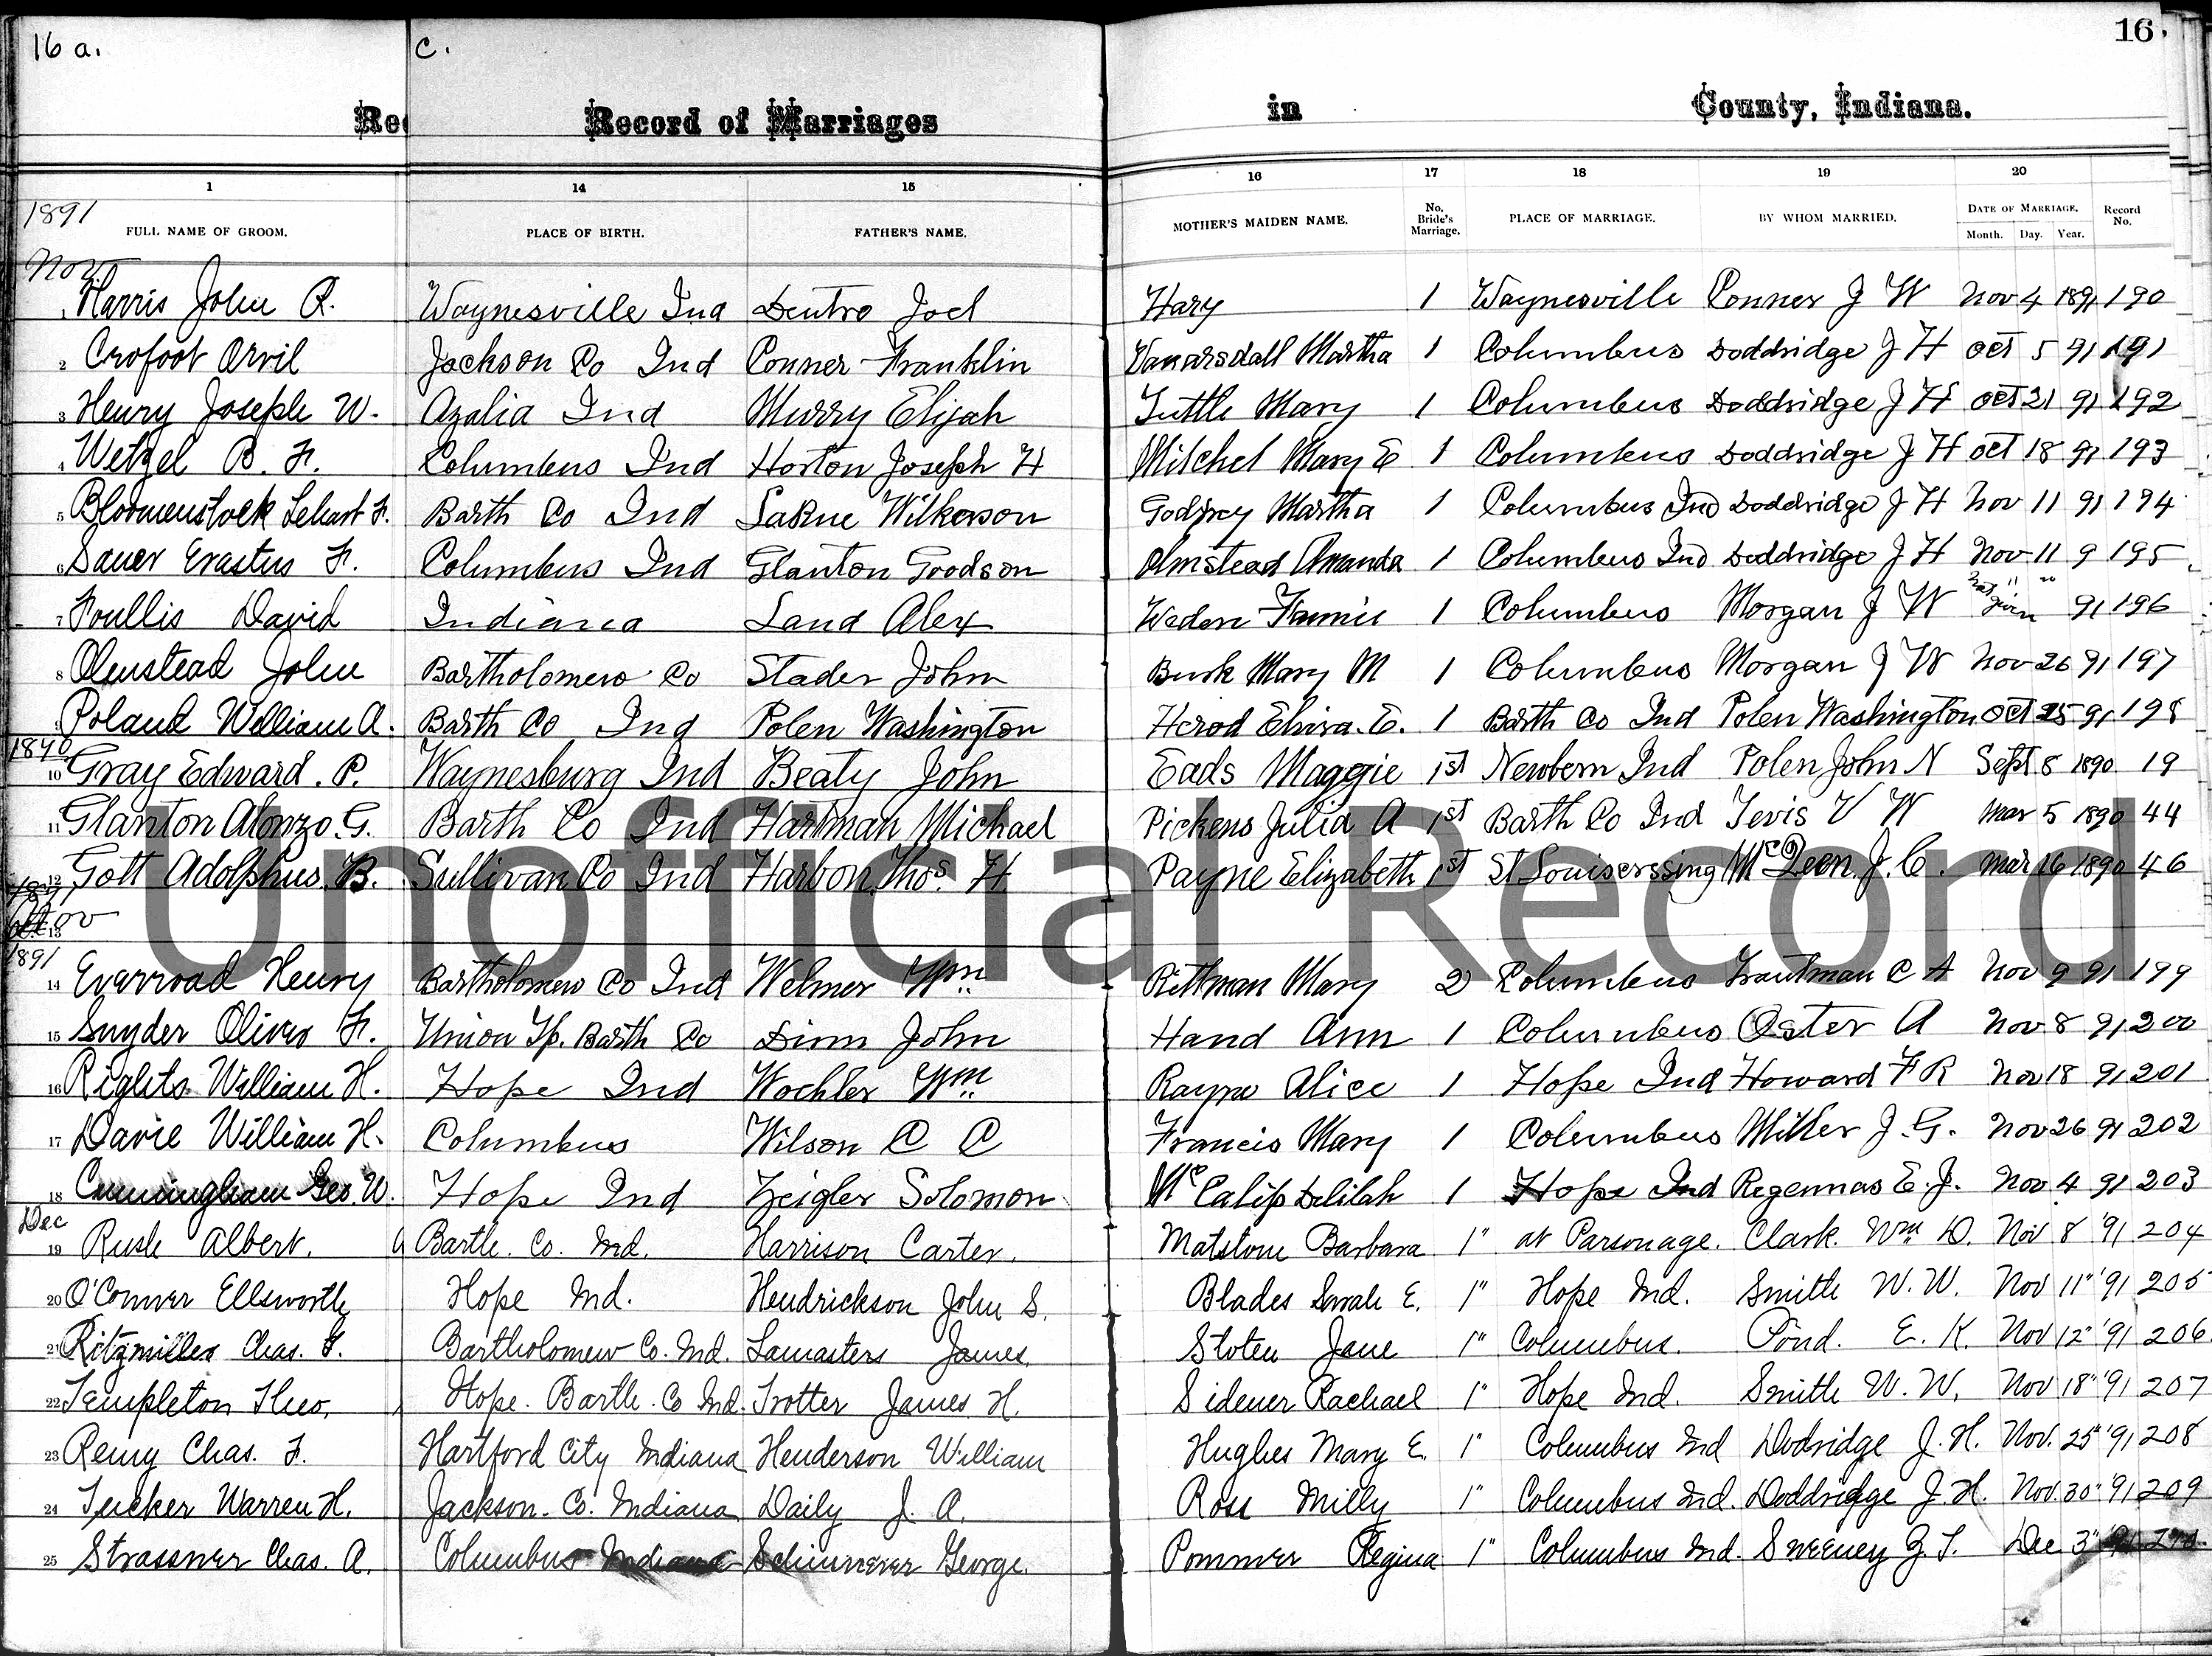 16 a.
C.
16.
Rec
Record of Marriages
in
County, Indiana.
1 14 15 16 17 18 19 20
1891
FULL NAME OF GROOM. PLACE OF BIRTH. FATHER'S NAME. MOTHER'S MAIDEN NAME. No. Bride's Marriage. PLACE OF MARRIAGE. BY WHOM MARRIED. DATE OF MARRIAGE. Month. Day. Year. Record No.
Nov
1 Harris John R. Waynesville Ind Dentro Joel Hary 1 Waynesville Conner J W Nov 4 1891 190
2 Crofoot Orvil Jackson Co Ind Conner Franklin Vanarsdall Martha 1 Columbus Doddridge J H oct 5 91 191
3 Henry Joseph W. Azalia Ind Murry Elijah Tuttle Mary 1 Columbus Doddridge J H oct 21 91 192
4 Wetzel B. F. Columbus Ind Horton Joseph H Mitchel Mary E 1 Columbus Doddridge J H oct 18 91 193
5 Bloomenstock F. Barth Co Ind LaRue Wilkerson Godfrey Martha 1 Columbus Ind Doddridge J H Nov 11 91 194
6 Sauer Erastus F. Columbus Ind Glanton Goodson Olmstead Amanda 1 Columbus Ind Doddridge J H Nov 11 9 195
7 Foullis David Indiana Land Alex Fannie 1 Columbus Morgan J W not given 91 196
8 Olmstead John Bartholomew Co Stader John Burk Mary M 1 Columbus Morgan J W Nov 26 91 197
9 Poland William A. Barth Co Ind Polen Washington Herod Elvira. E. 1 Barth Co Ind Polen Washington oct 25 91 198
1890
10 Gray Edward. P. Waynesburg Ind Beaty John Eads Maggie 1st Newbern Ind Polen John N Sept 8 1890 19
11 Glanton Alonzo. G. Barth Co Ind Hartman Michael Pickens Julia A 1st Barth Co Ind Tevis V W Mar 5 1890 44
12 Gott Adolphus. B. Sullivan Co Ind Harbon Thos. H Payne Elizabeth 1st St Louiscrssing J. C. Mar 16 1890 46
1891
Nov
13
1891
14 Everroad Henry Bartholomew Co Ind Welmer Wm Rittman Mary 2 Columbus Trautman C A Nov 9 91 199
15 Snyder Oliver F. Union Tp. Barth Co Dinn John Hand Ann 1 Columbus Oster A Nov 8 91 200
16 Rights William H. Hope Ind Wochler Wm Rayne Alice 1 Hope Ind Howard F R Nov 18 91 201
17 Davie William H. Columbus Wilson C C Francis Mary 1 Columbus Miller J. G. Nov 26 91 202
18 Cunningham Geo. W. Hope Ind Zeigler Solomon McCalip Delilah 1 Hope Ind Regennas E. J. Nov 4 91 203
Dec
19 Rush Albert. Barth. Co. Ind. Harrison Carter. Matstone Barbara 1" at Parsonage. Clark. Wm. D. Nov 8 '91 204
20 O'Conner Ellsworth Hope Ind. Hendrickson John S. Blades Sarah E. 1" Hope Ind. Smith W. W. Nov 11" '91 205
21 Ritzmiller Chas. F. Bartholomew Co. Ind. Lamasters James. Stoten Jane 1" Columbus. Pond. E. K. Nov 12" '91 206
22 Templeton Theo. Hope. Barth. Co Ind. Trotter James H. Sidener Rachael 1" Hope Ind. Smith W. W. Nov 18" '91 207
23 Remy Chas. F. Hartford City Indiana Henderson William Hughes Mary E. 1" Columbus Ind Dodridge J. H. Nov. 25" '91 208
24 Tucker Warren H. Jackson. Co. Indiana Daily J. A. Ross Milly 1" Columbus Ind. Doddridge J. H. Nov. 30" '91 209
25 Strassner Chas. A. Columbus Indiana Schinnerer George. Pommer Regina 1" Columbus Ind. Sweeney Z. T. Dec 3" '91 210.
Unofficial Record